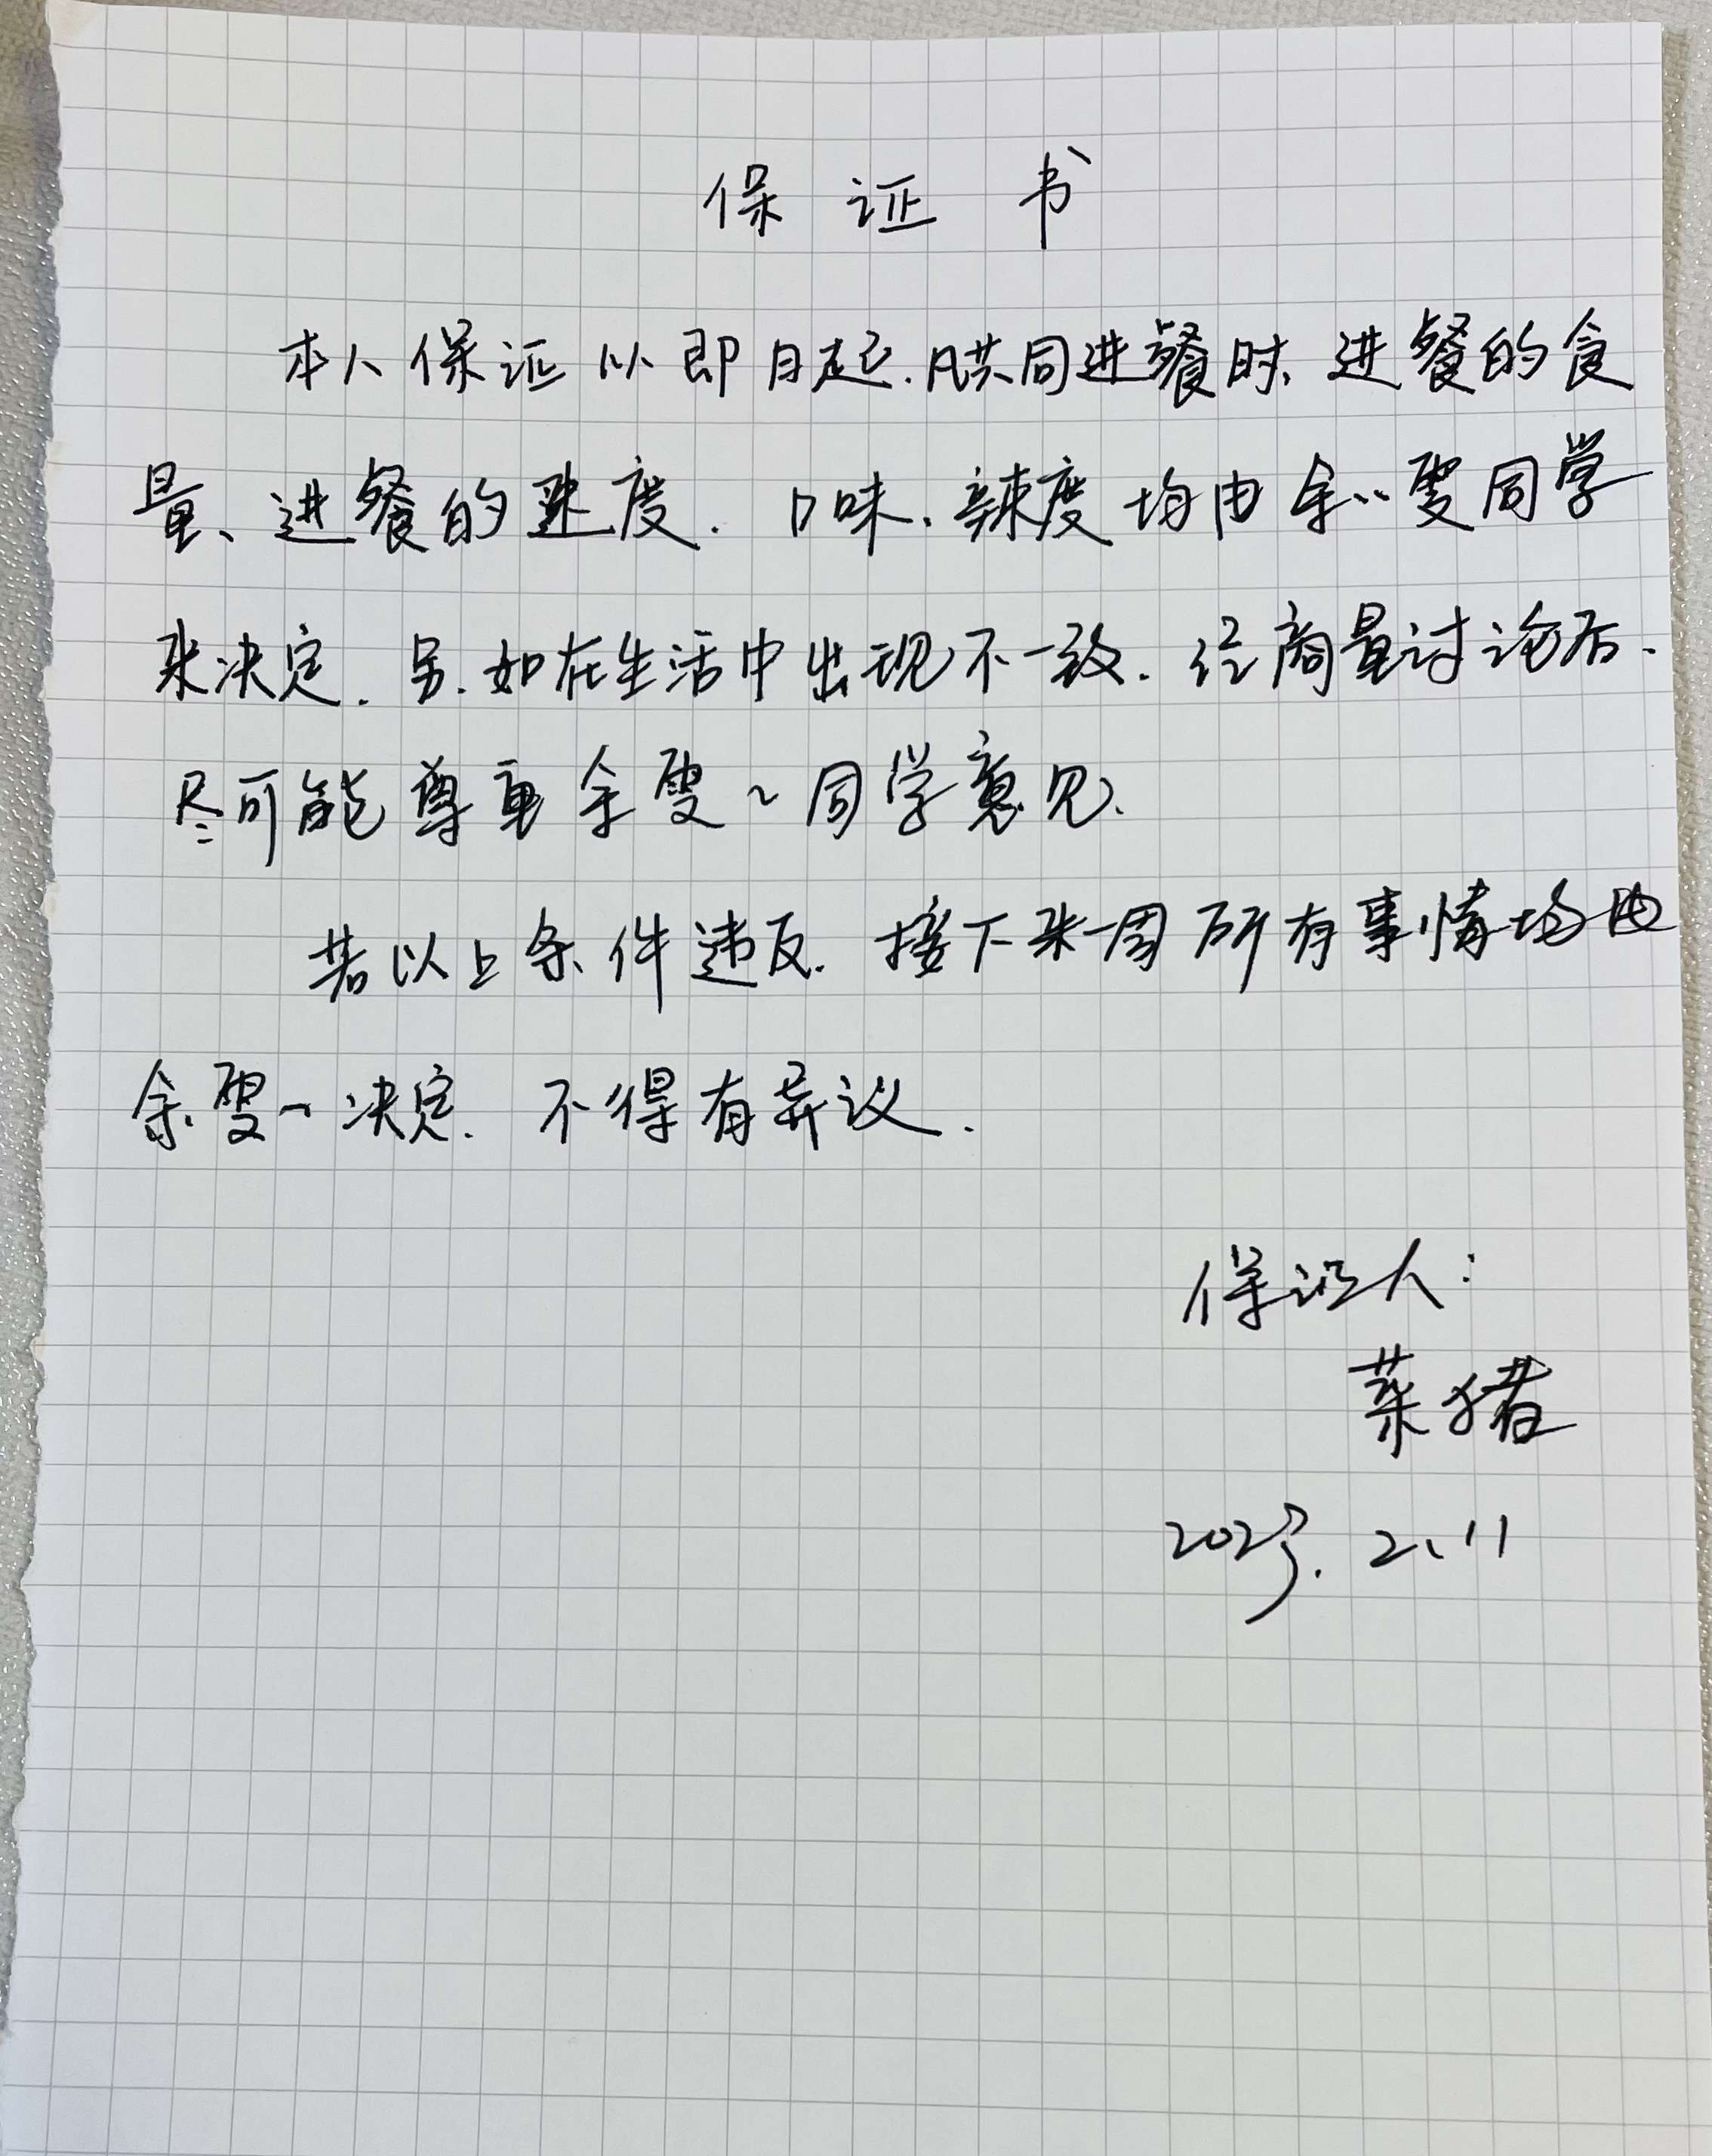 保 证 书
本人保证以即日起.凡共同进餐时、进餐的食
量、进餐的速度.口味.辣度均由余雯同学
来决定.另.如在生活中出现不一致.经商量讨论后.
尽可能尊重余雯~同学意见.
若以上条件违反.接下来一周所有事情均由
余雯一决定.不得有异议.
保证人:
菜猪
2023.2.11